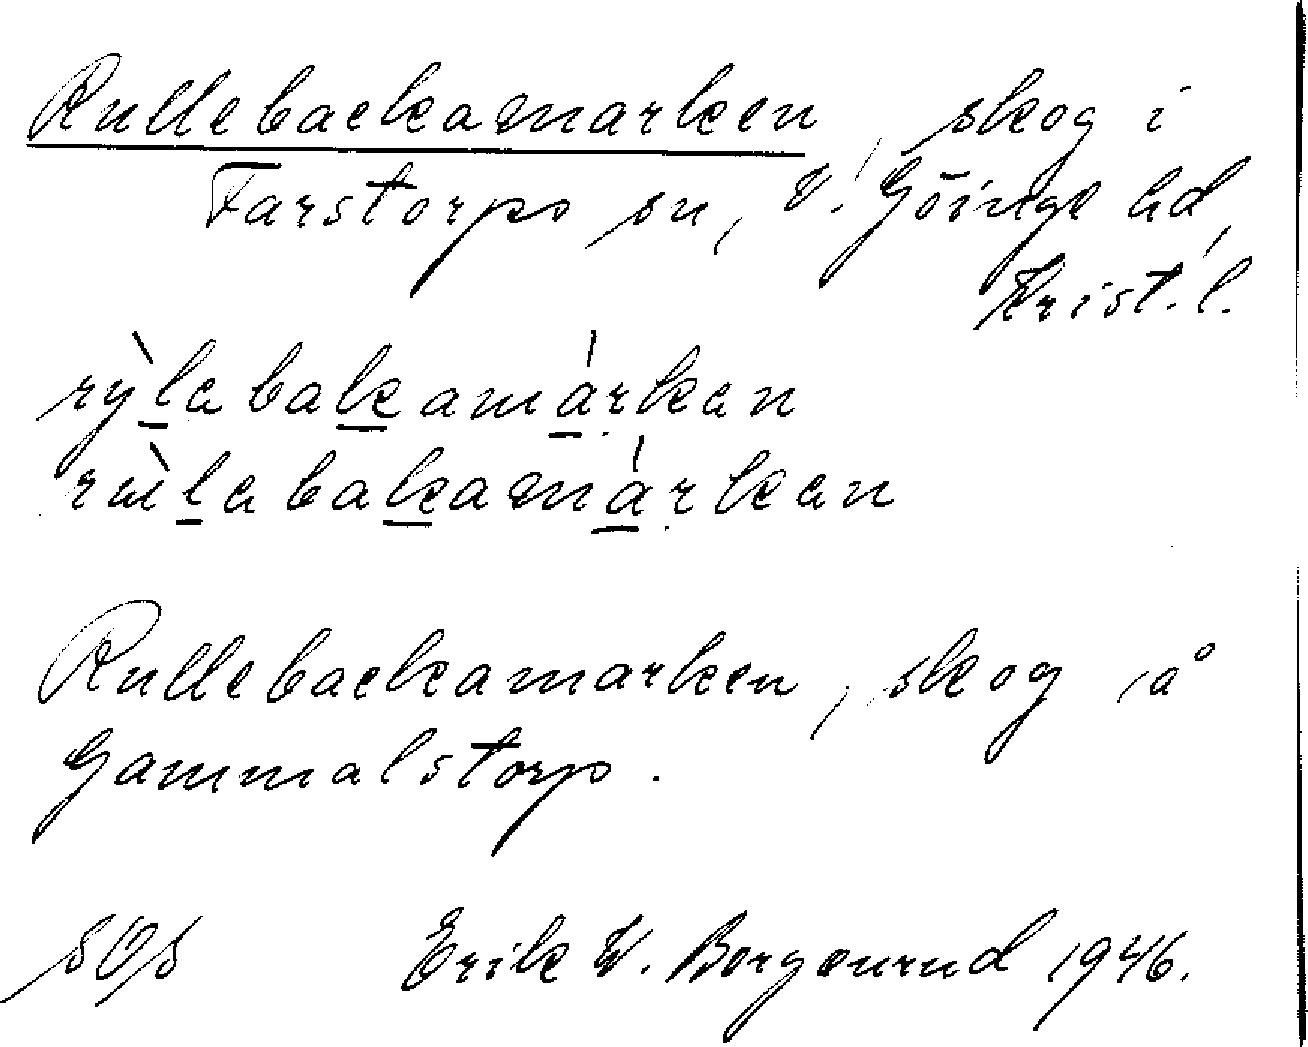 Rullebackamarken, skog i
Farstorps sn, V. Göinge hd,
Krist. l.
rỳla bakamárkan
rùla bakamárkan
Rullebackamarken, skog å
Gammalstorp.
Erik W. Borgeurud 1946.